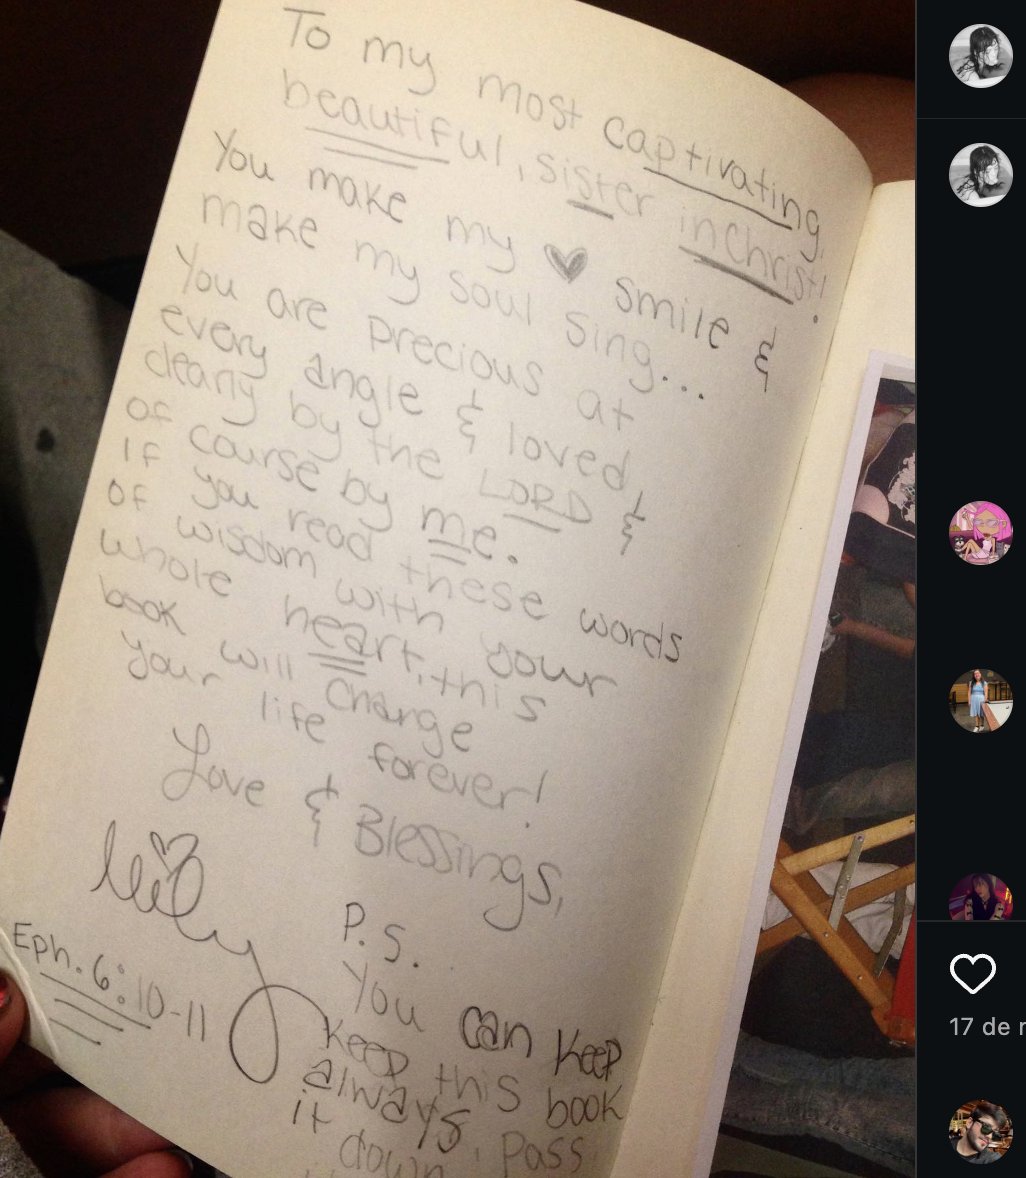 To my most captivating,
beautiful, sister in Christ!
You make my ♥ smile &
make my soul sing...
You are precious at
every angle & loved,
dearly by the LORD &
of course by me.
If you read these words
of wisdom with your
whole heart, this
book will change
your life forever!
Love & Blessings,
Eph. 6:10-11
P.S.
You can keep
keep this book
always, pass
it down
17 de